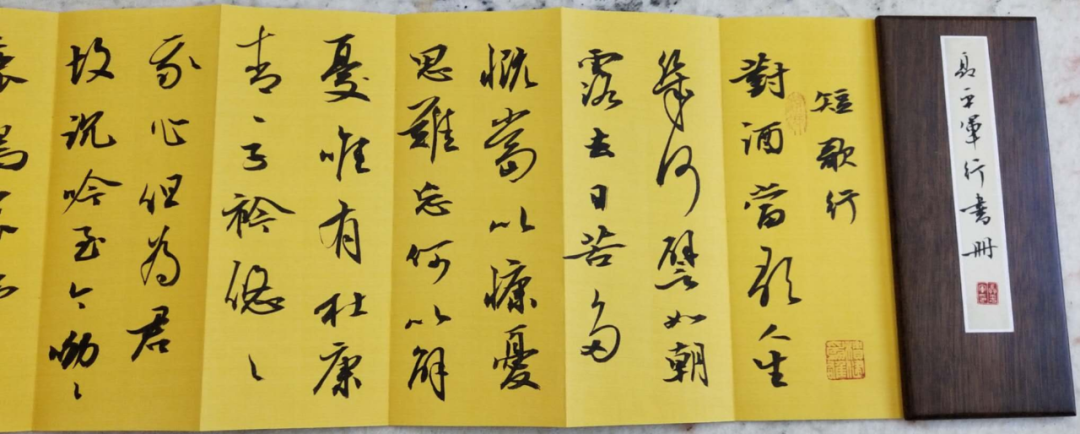 軍行书册
短歌行
對酒當歌人生
幾何譬如朝
露去日苦多
慨當以慷憂
思難忘何以解
憂唯有杜康
青〻子衿悠〻
我心但為君
故沉吟至今呦〻